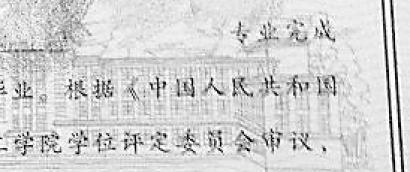 专业完成
毕业。根据《中国人民共和国
工学院学位评定委员会审议，